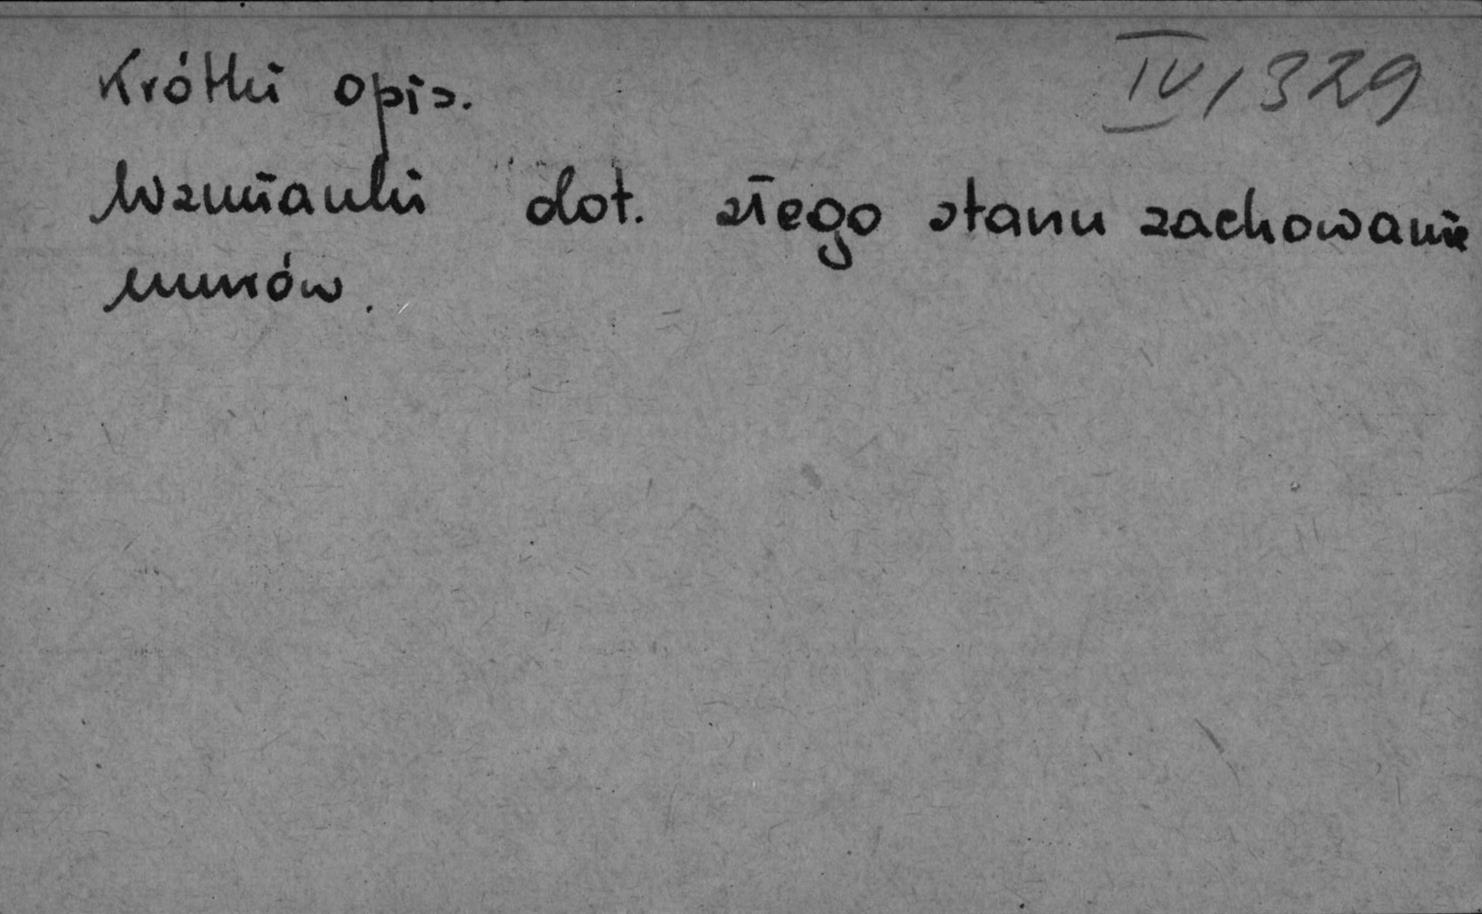 IV/329
Krótki opis.
Wzmianki dot. złego stanu zachowania
murów.